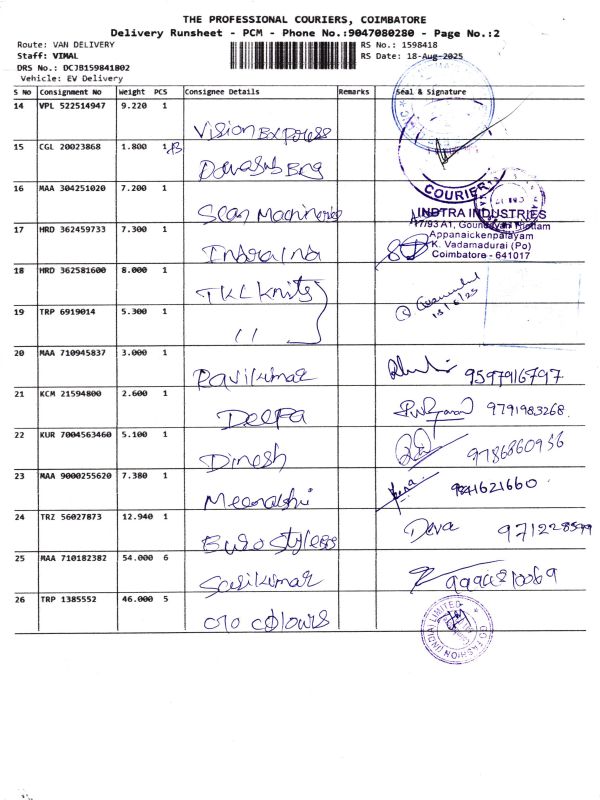 THE PROFESSIONAL COURIERS, COIMBATORE
Delivery Runsheet - PCM - Phone No.:9047080280 - Page No.:2
Route: VAN DELIVERY RS No.: 1598418
Staff: VIMAL RS Date: 18-Aug-2025
DRS No.: DCJB159841802
Vehicle: EV Delivery
S No Consignment No Weight PCS Consignee Details Remarks Seal & Signature
14 VPL 522514947 9.220 1 Vision Express
15 CGL 20023868 1.800 1
COURIER
16 MAA 304251020 7.200 1 Scan Machineries
INDTRA INDUSTRIES
17/93 A1, Goundayan Thottam
Appanaickenpalayam
K. Vadamadurai (Po)
Coimbatore - 641017
17 HRD 362459733 7.300 1 Indra Ind
18 HRD 362581600 8.000 1 TKL Knits
19 TRP 6919014 5.300 1 11
20 MAA 710945837 3.000 1 Ravikumar 9597916797
21 KCM 21594800 2.600 1 Deepa 9791983268
22 KUR 7004563460 5.100 1 Dinesh 9786860936
23 MAA 9000255620 7.380 1 Meenakshi 9841621660
24 TRZ 56027873 12.940 1 Euro Styless Deva 971228599
25 MAA 710182382 54.000 6 Sasikumar
26 TRP 1385552 46.000 5 Go Colours
GO FASHION (INDIA) LIMITED